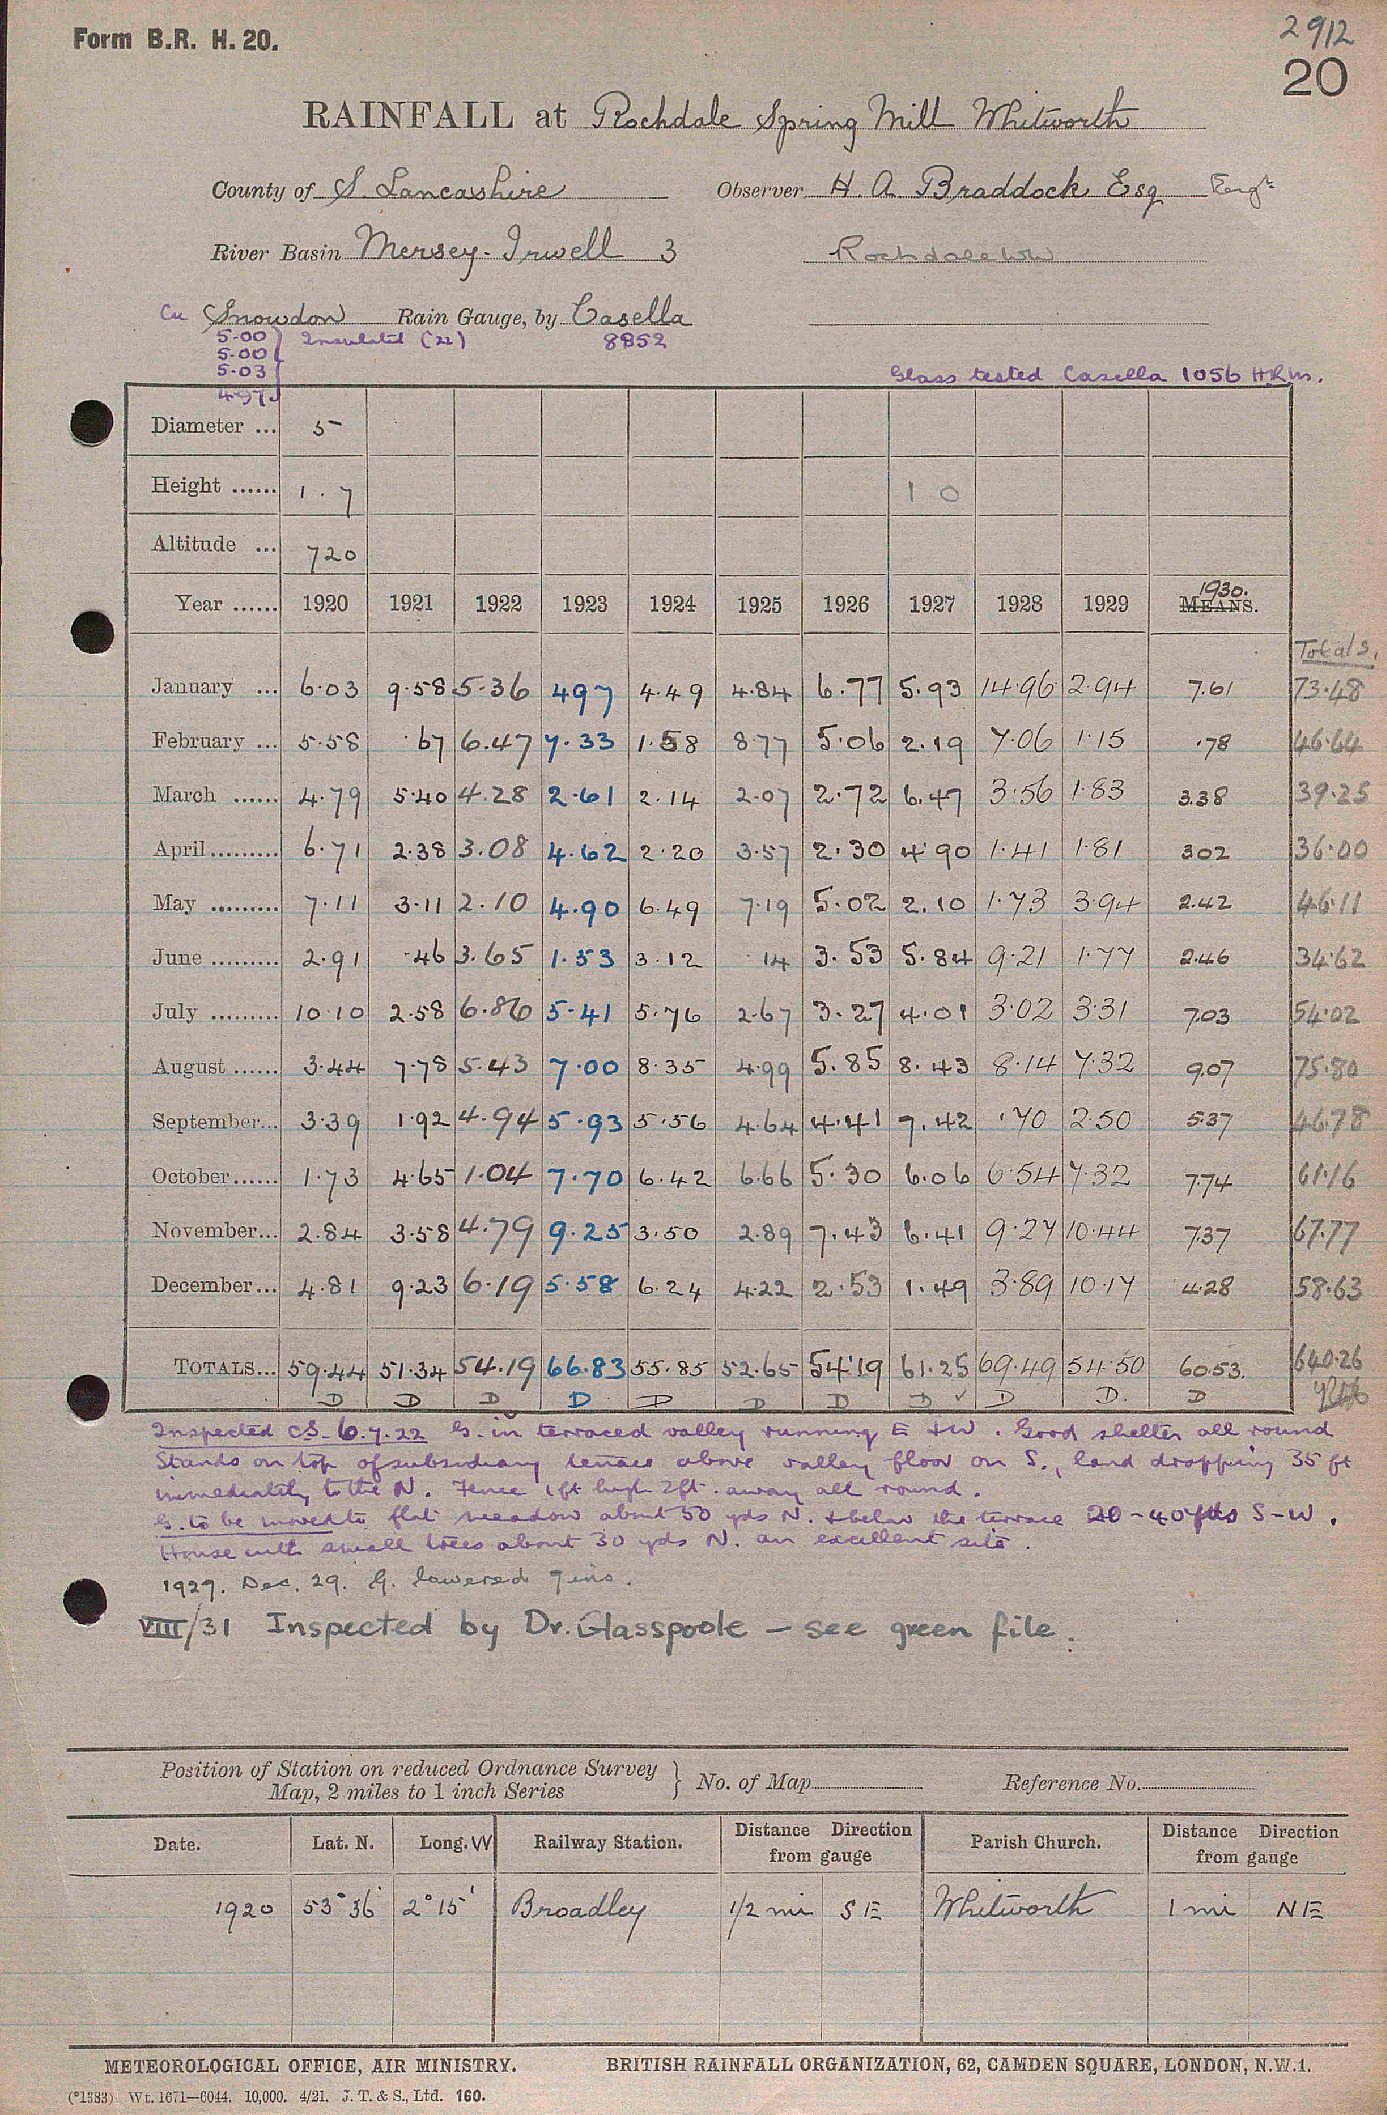 Form B.R. H. 20.
2912
20
RAINFALL at Rochdale Spring Mill Whitworth
County of S. Lancashire Observer H. A. Braddock Esq
River Basin Mersey-Irwell 3 Rochdale WW
Cu Snowdon Rain Gauge, by Casella
5.00 Insulated (22) 8852
5.00
5.03
4.97
Glass tested Casella 1056 H.R.M.
Diameter ... 5
Height ...... 1.7 1 0
Altitude ... 720
Year ...... 1920 1921 1922 1923 1924 1925 1926 1927 1928 1929 1930. MEANS.
Totals.
January ... 6.03 9.58 5.36 4.97 4.49 4.84 6.77 5.93 14.96 2.94 7.61 73.48
February ... 5.58 .67 6.47 7.33 1.58 8.77 5.06 2.19 7.06 1.15 .78 46.64
March ...... 4.79 5.40 4.28 2.61 2.14 2.07 2.72 6.47 3.56 1.83 3.38 39.25
April ......... 6.71 2.38 3.08 4.62 2.20 3.57 2.30 4.90 1.41 1.81 302 36.00
May ......... 7.11 3.11 2.10 4.90 6.49 7.19 5.02 2.10 1.73 3.94 2.42 46.11
June ......... 2.91 .46 3.65 1.53 3.12 .14 3.53 5.84 9.21 1.77 2.46 34.62
July ......... 10.10 2.58 6.86 5.41 5.76 2.67 3.27 4.01 3.02 3.31 7.03 54.02
August ...... 3.44 7.78 5.43 7.00 8.35 4.99 5.85 8.43 8.14 7.32 9.07 75.80
September... 3.39 1.92 4.94 5.93 5.56 4.64 4.41 7.42 .70 2.50 5.37 46.78
October...... 1.73 4.65 1.04 7.70 6.42 6.66 5.30 6.06 6.54 7.32 7.74 61.16
November... 2.84 3.58 4.79 9.25 3.50 2.89 7.43 6.41 9.27 10.44 7.37 67.77
December... 4.81 9.23 6.19 5.58 6.24 4.22 2.53 1.49 3.89 10.17 4.28 58.63
TOTALS... 59.44 51.34 54.19 66.83 55.85 52.65 54.19 61.25 69.49 54.50 60.53. 640.26
D D D D D D D D ✓ D D. D
Inspected CS. 6.7.22 G. in terraced valley running E & W. Good shelter all round
Stands on top of subsidiary terrace above valley floor on S., land dropping 35 ft
immediately to the N. Fence 1ft high 2ft. away all round.
G. to be moved to flat meadow about 50 yds N. & below the terrace 20-40 yds S-W.
House with small trees about 30 yds N. an excellent site.
1927. Dec. 29. G. lowered 9 ins.
VIII/31 Inspected by Dr. Glasspoole - see green file.
Position of Station on reduced Ordnance Survey Map, 2 miles to 1 inch Series } No. of Map Reference No.
Date. Lat. N. Long. W Railway Station. Distance Direction from gauge Parish Church. Distance Direction from gauge
1920 53°36' 2°15' Broadley 1/2 mi SE Whitworth 1 mi NE
METEOROLOGICAL OFFICE, AIR MINISTRY. BRITISH RAINFALL ORGANIZATION, 62, CAMDEN SQUARE, LONDON, N.W.1.
(*1383) Wt. 1671—6044. 10,000. 4/21. J. T. & S., Ltd. 160.